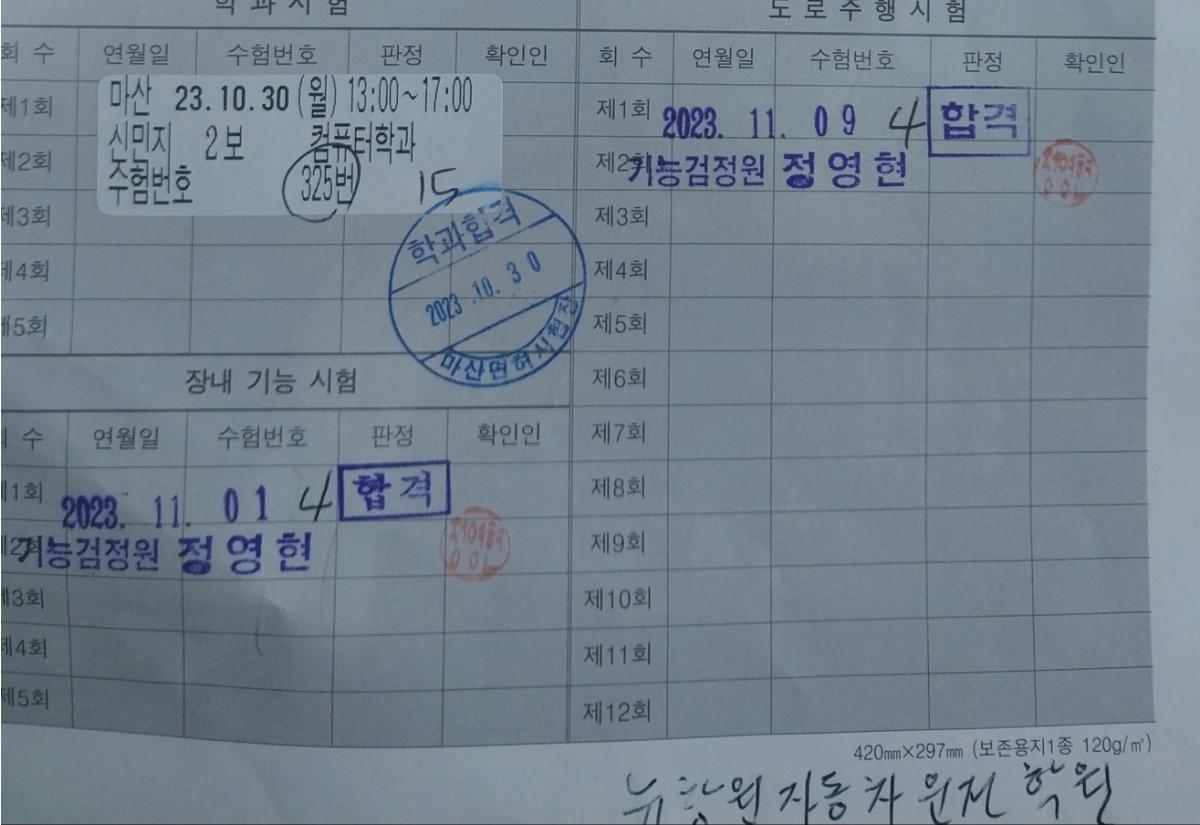 학 과 시 험
회 수 연월일 수험번호 판정 확인인
제1회
마산 23.10.30 (월) 13:00~17:00
신민지 2보 컴퓨터학과
수험번호 325번 15
제2회
제3회
제4회
제5회
학과합격
2023. 10. 30
마산면허시험장
장내 기능 시험
회 수 연월일 수험번호 판정 확인인
제1회 2023. 11. 01 4 합격
제2회 기능검정원 정영현
제3회
제4회
제5회
도 로 주 행 시 험
회 수 연월일 수험번호 판정 확인인
제1회 2023. 11. 09 4 합격
제2회 기능검정원 정영현
제3회
제4회
제5회
제6회
제7회
제8회
제9회
제10회
제11회
제12회
420㎜×297㎜ (보존용지1종 120g/㎡)
뉴창원자동차운전학원